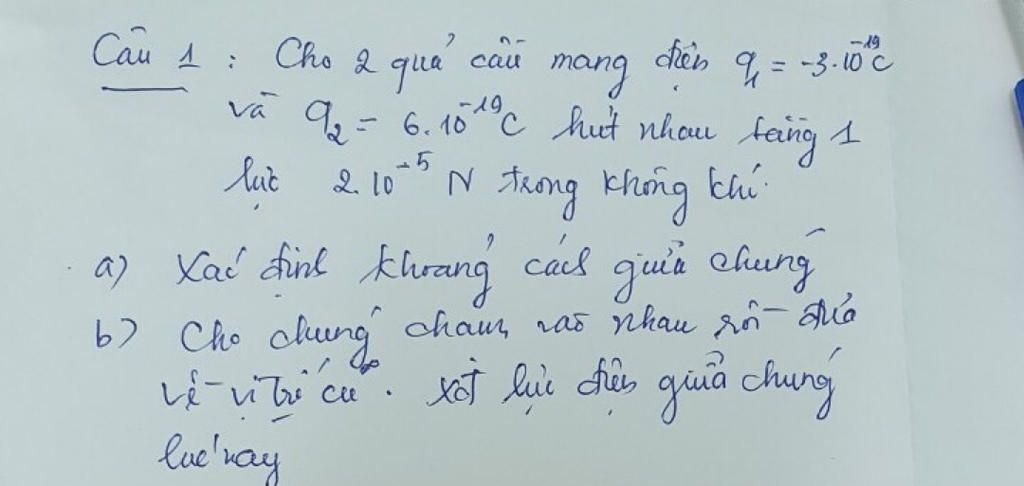 Câu 1 : Cho 2 quả cầu mang điện q₁ = -3.10⁻¹⁹C
và q₂ = 6.10⁻¹⁹C hút nhau bằng 1
lực 2.10⁻⁵ N trong không khí.
a) Xác định khoảng cách giữa chúng
b) Cho chúng chạm vào nhau rồi đưa
về vị trí cũ. Xđ lực điện giữa chúng
lúc này